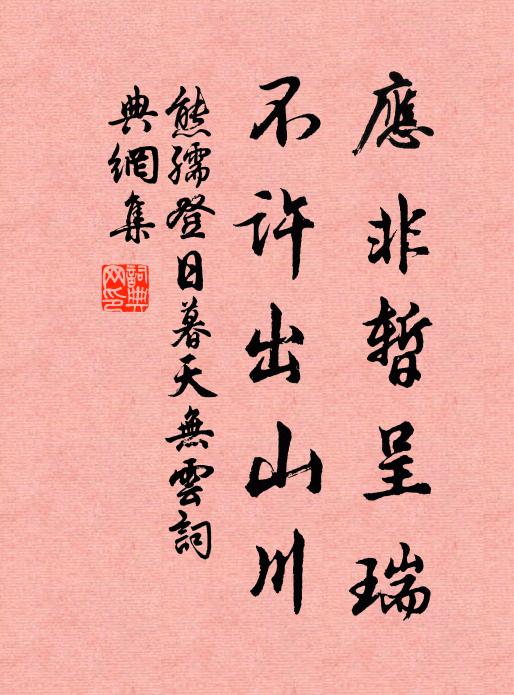 應非暫呈瑞
不許出山川
熊孺登日暮天無雲詞
典網集
詞典
网印